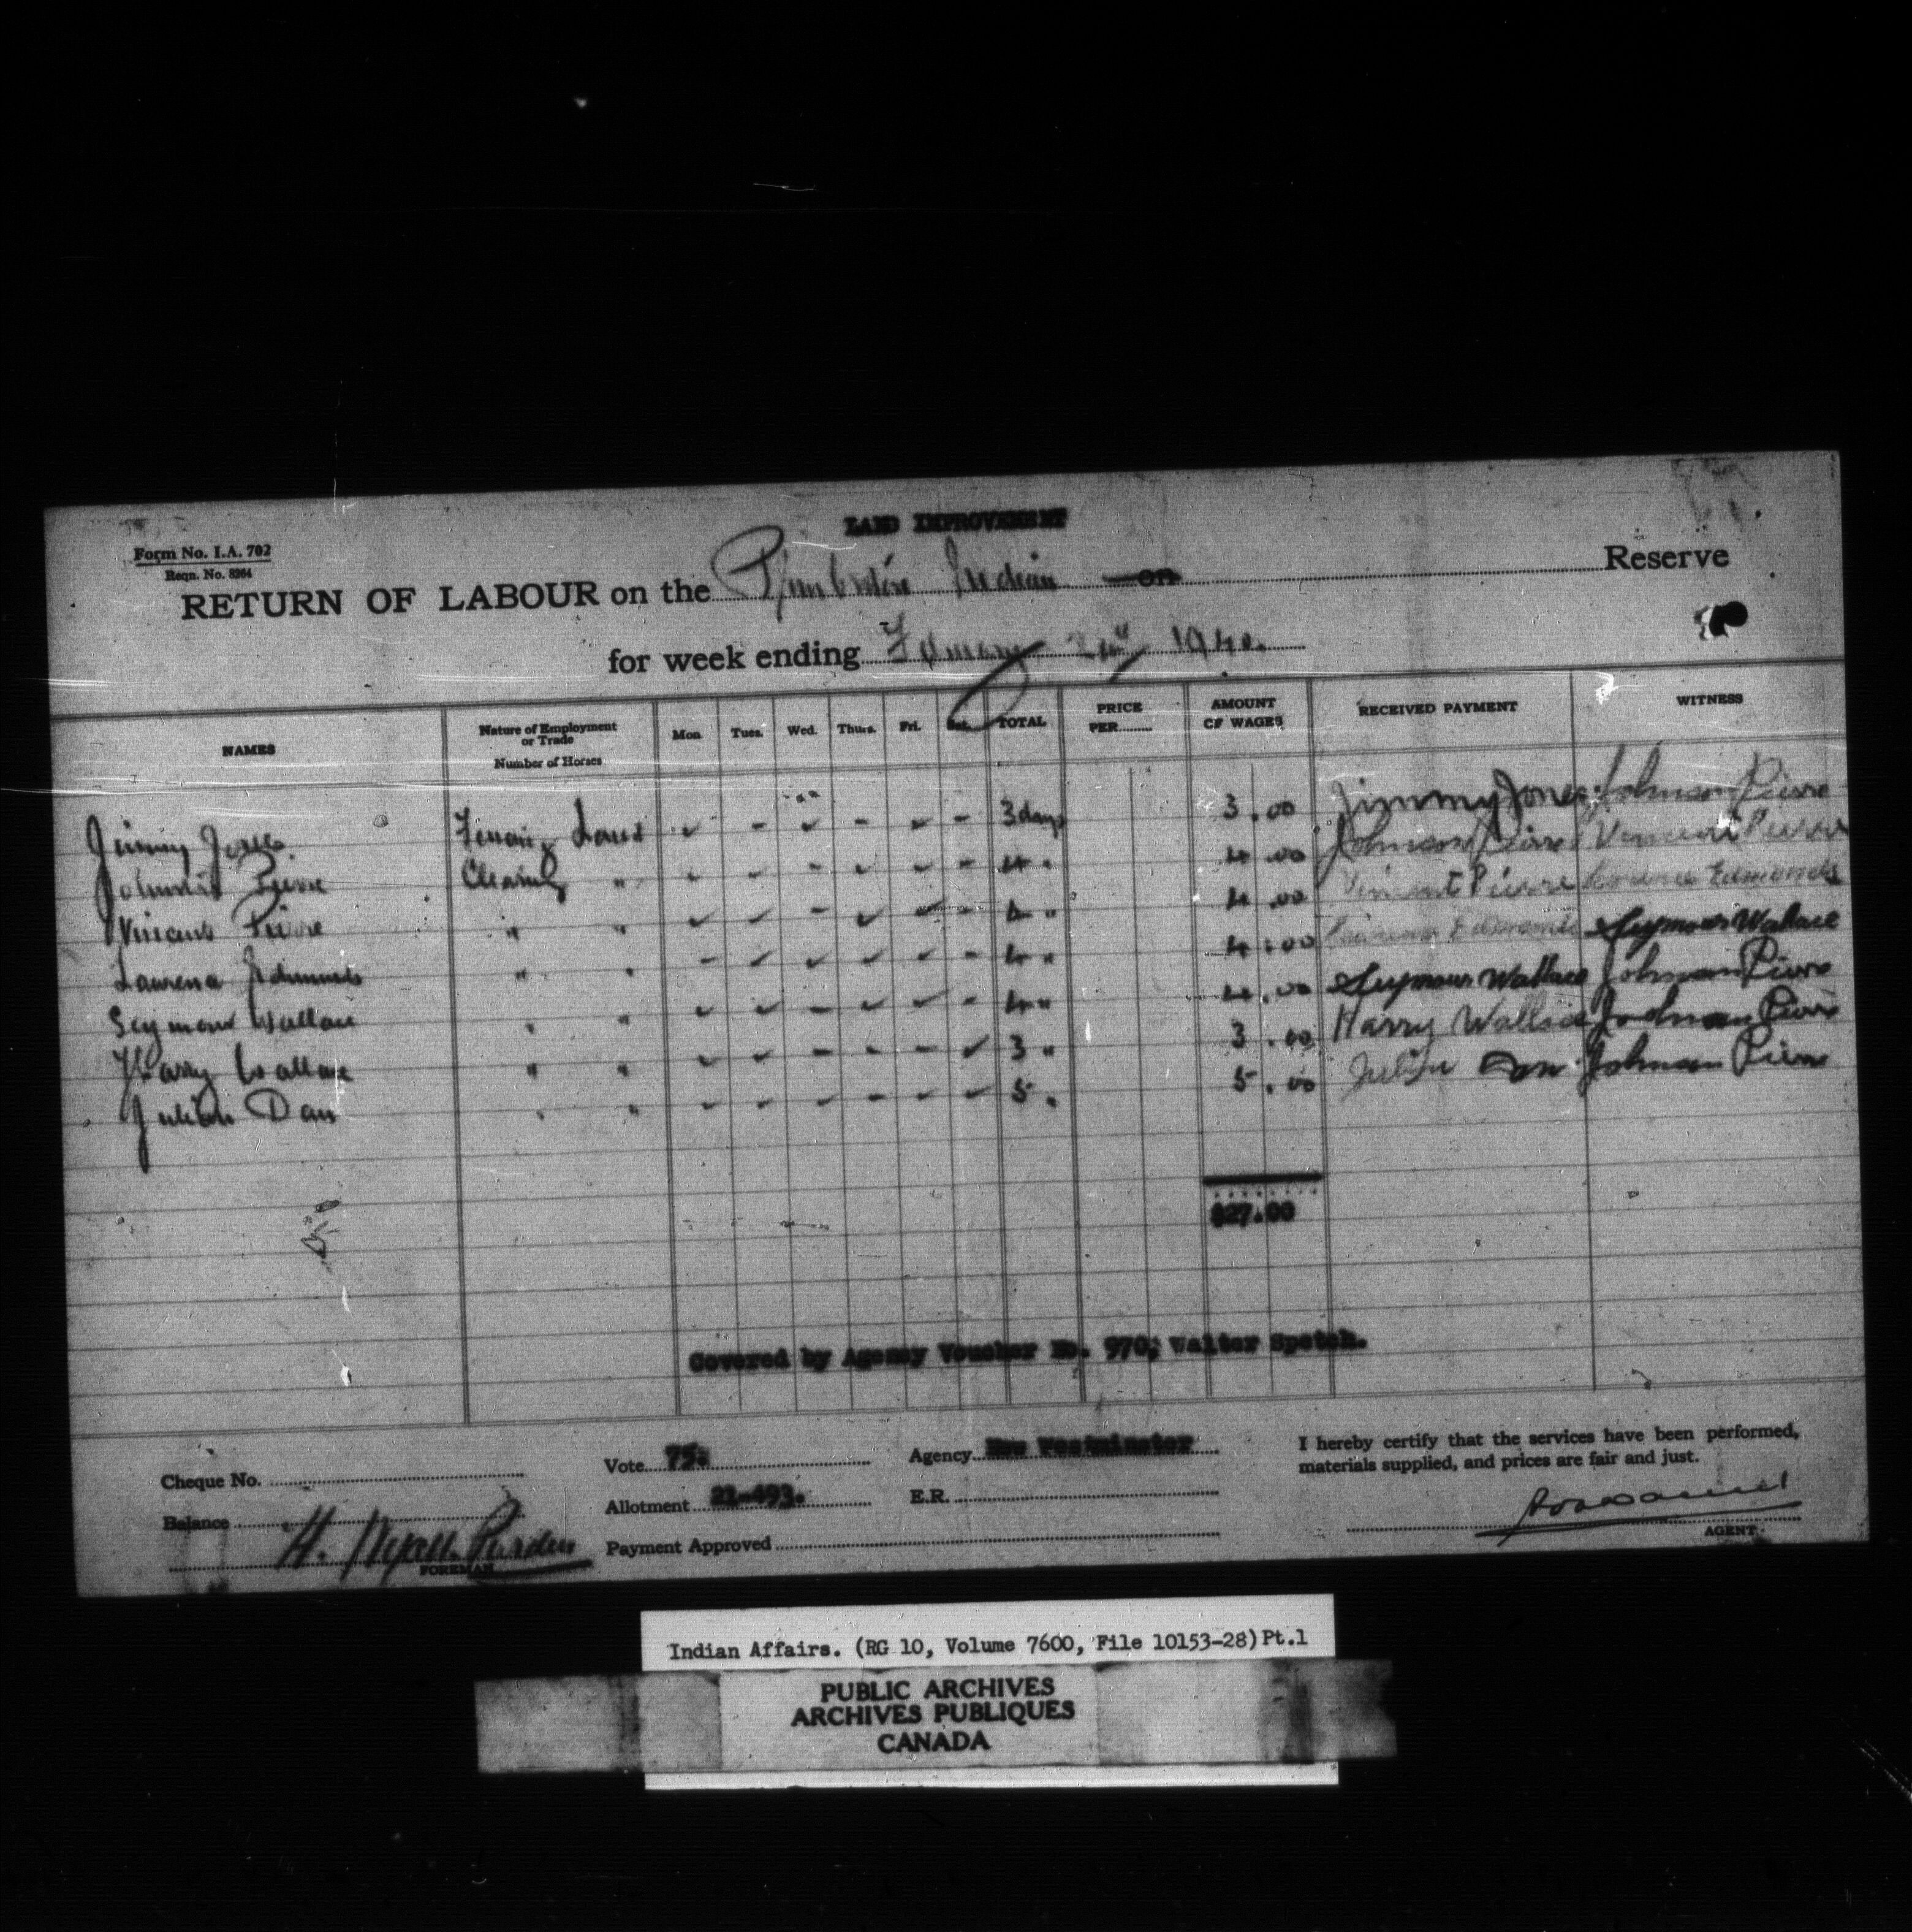 LAND IMPROVEMENT
Form No. I.A. 702
Reqn. No. 8264
RETURN OF LABOUR on the Indian on Reserve
for week ending 1940.
NAMES Nature of Employment or Trade Number of Horses Mon. Tues. Wed. Thurs. Fri. Sat. TOTAL PRICE PER AMOUNT OF WAGES RECEIVED PAYMENT WITNESS
Jimmy Jones Land ✓ - ✓ - ✓ - 3 days 3.00 Jimmy Jones Johnson Pierre
Pierre Clearing " 4 " 4.00 Johnson Pierre Vincent Pierre
Vincent Pierre " " ✓ ✓ - ✓ ✓ - 4 " 4.00 Vincent Pierre Edmonds
Edmonds " " - ✓ ✓ ✓ ✓ - 4 " 4.00 Edmonds Seymour Wallace
Seymour Wallace " " ✓ ✓ - ✓ ✓ - 4 " 4.00 Seymour Wallace Johnson Pierre
Harry Wallace " " ✓ ✓ - - - ✓ 3 " 3.00 Harry Wallace Johnson Pierre
Julian Dan " " 5 " 5.00 Dan Johnson Pierre
$27.00
Covered by Agency Voucher No. 970; Walter Spetch.
Cheque No. Vote 75. Agency New Westminster I hereby certify that the services have been performed,
materials supplied, and prices are fair and just.
Balance Allotment 21-493. E.R.
H. FOREMAN Payment Approved AGENT.
Indian Affairs. (RG 10, Volume 7600, File 10153-28) Pt.1
PUBLIC ARCHIVES
ARCHIVES PUBLIQUES
CANADA